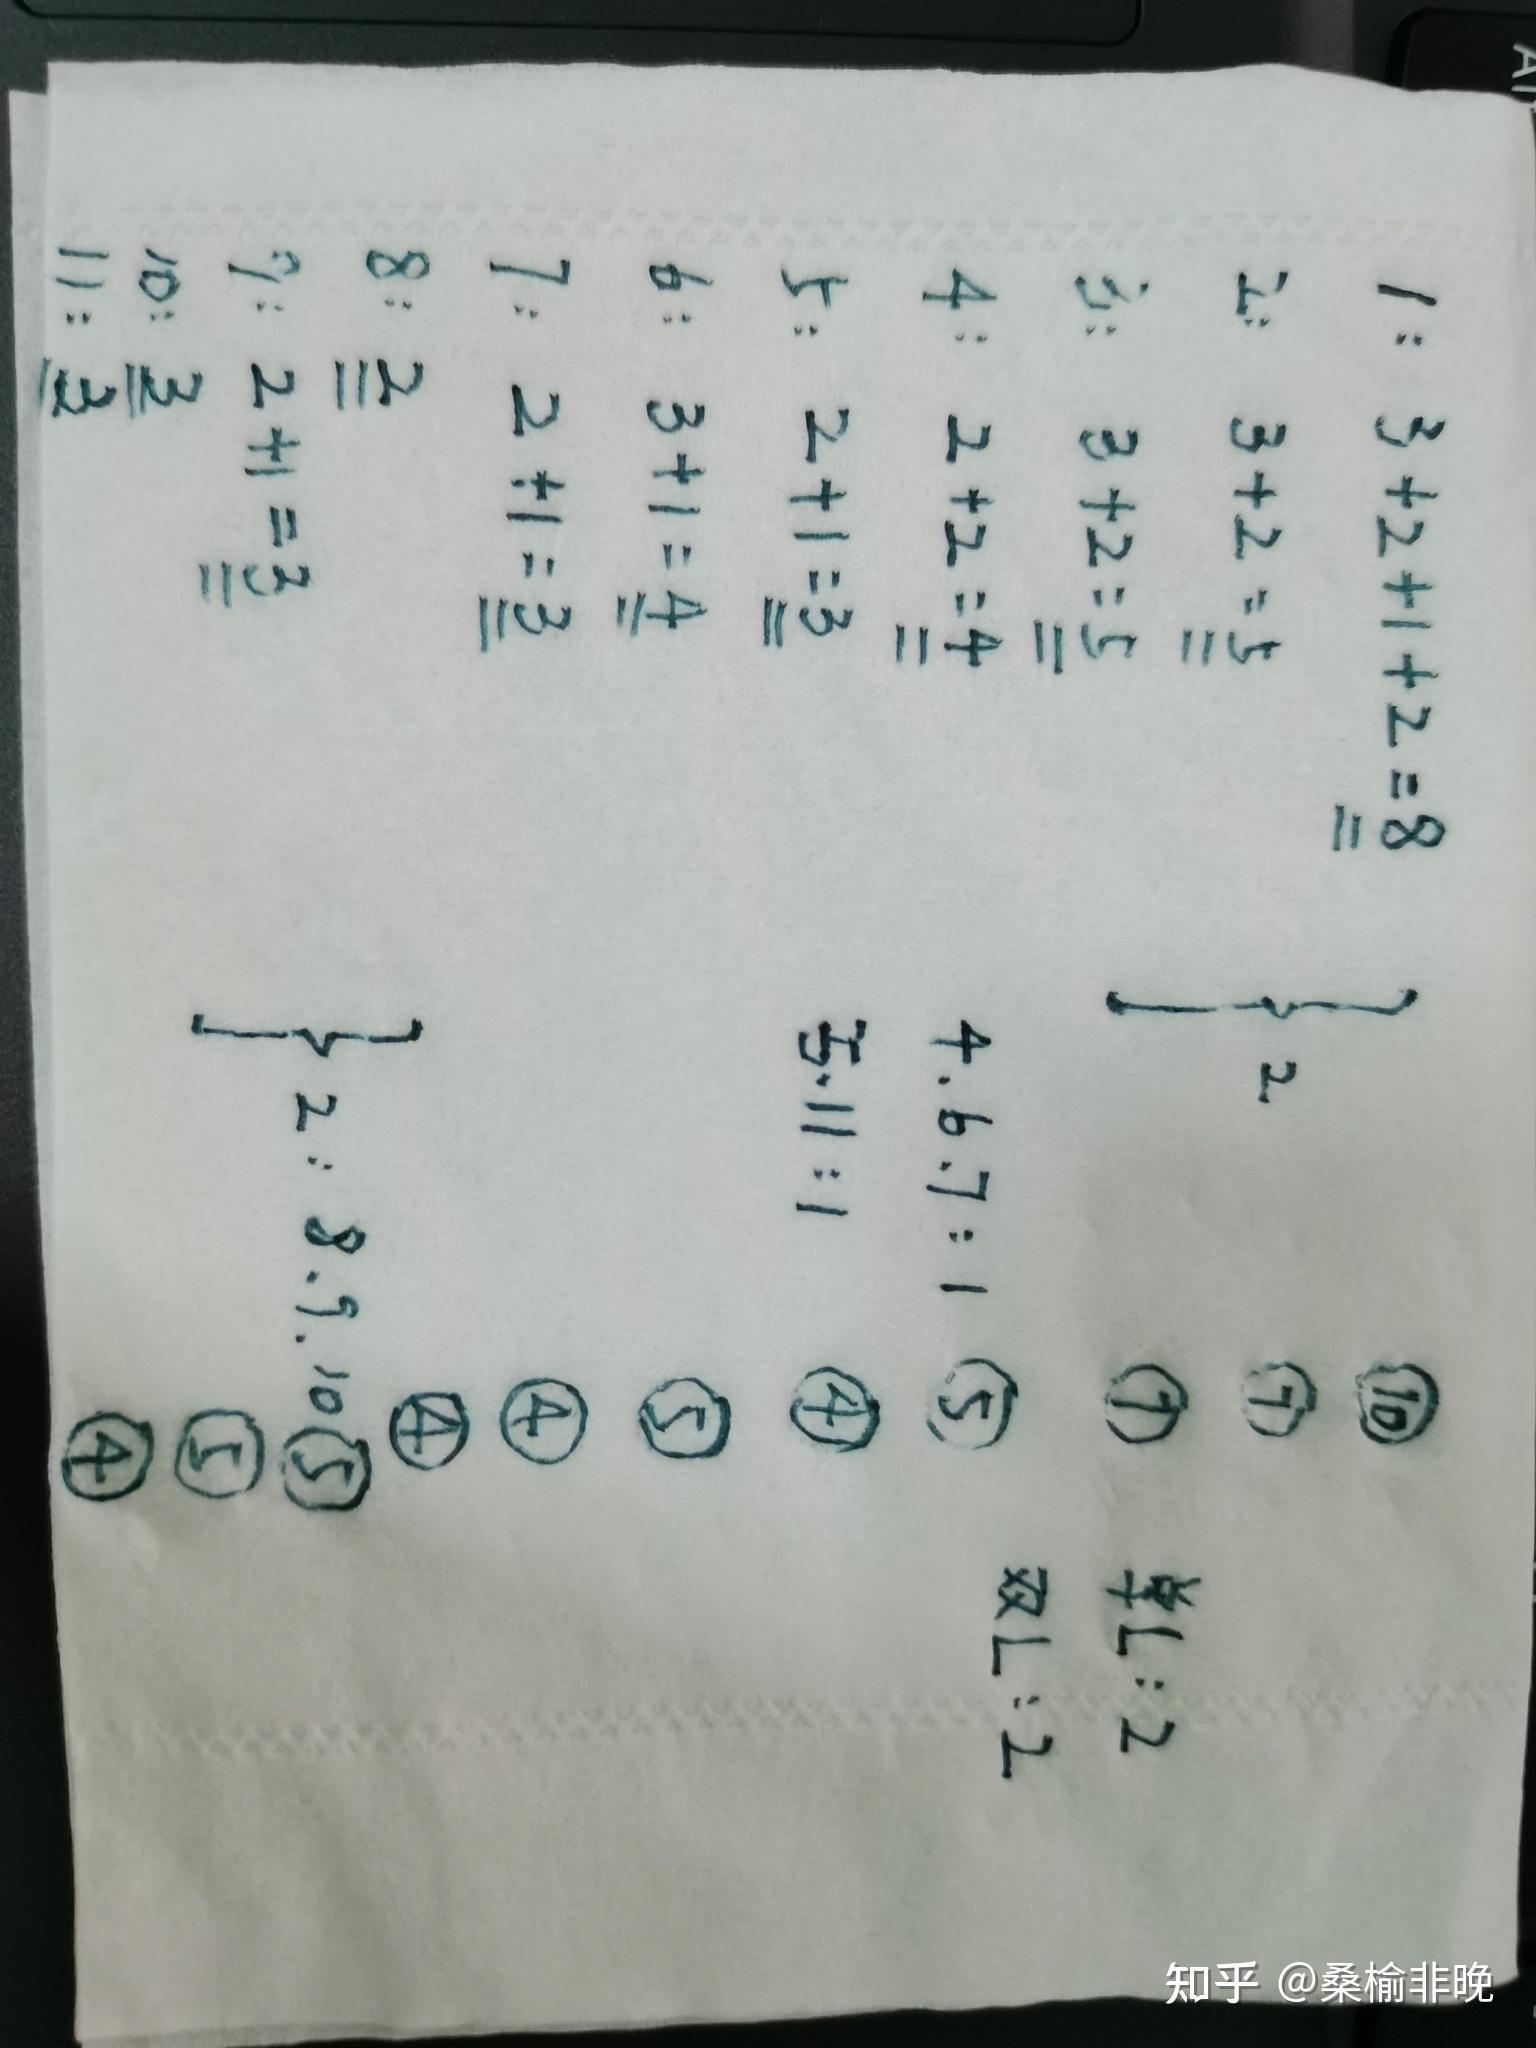 1: 3+2+1+2=8
2: 3+2=5
3: 3+2=5
} 2
4: 2+2=4
4.6.7:1
5: 2+1=3
5.11:1
6: 3+1=4
7: 2+1=3
8: 2
9: 2+1=3
10: 3
} 2: 8.9.10
11: 3
⑩
⑦
⑦
⑤
④
⑤
④
④
⑤
⑤
④
单L:2
双L:2
知乎 @桑榆非晚